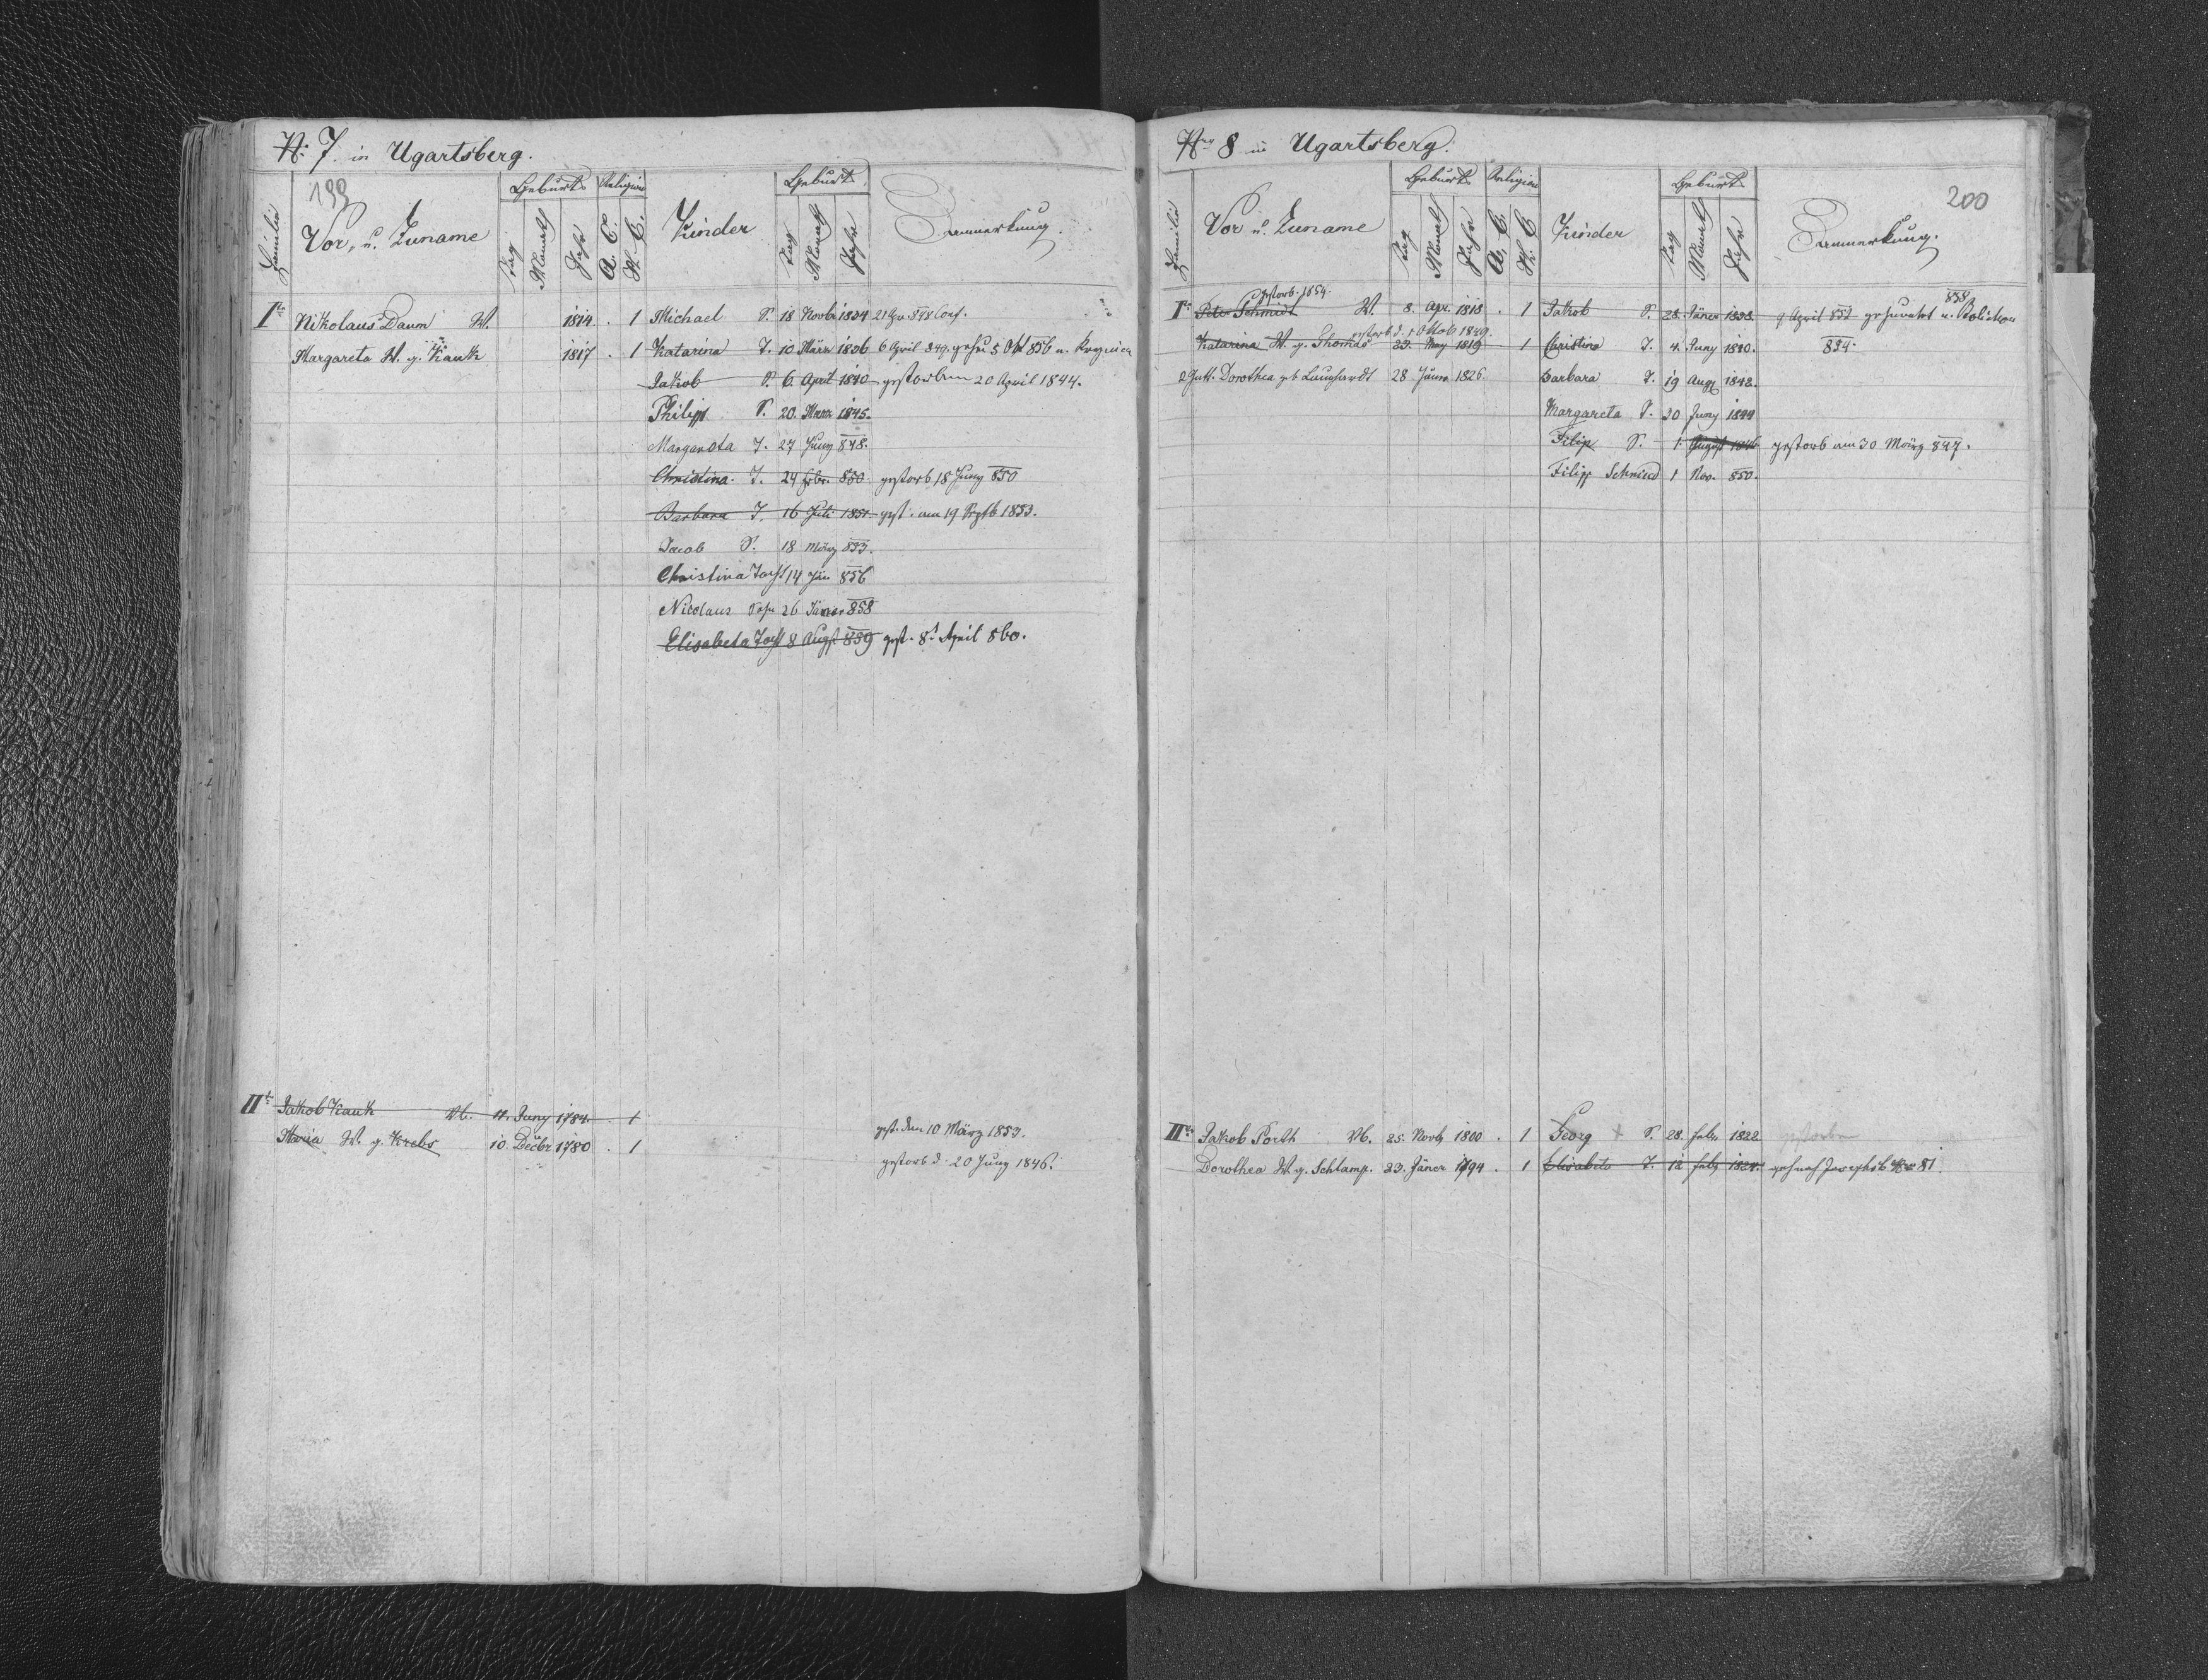 N: 7. in Ugartsberg.
199
Familie Vor, u. Zuname Geburts Tag Monath Jahr Religion A. C. H. C. Kinder Geburts Tag Monath Jahr Anmerkung.
I. Nikolaus Daum M. 1814 . 1 Michael S. 18 Novbr 1834 21 848 Conf.
Margareta W. g. Kauk 1817 . 1 Katarina T. 10 März 1836 6 April 849. 5 Okt 856 n.
Jakob S. 6 April 1840 gestorben 20 April 1844.
Philipp S. 20. März 1845.
Margareta T. 27 Juny 848.
Christina. T. 24 Febr. 850 gestorb 18 Juny 850
Barbara T. 16 Juli 1851 gest. am 19 Septb 1853.
Jacob S. 18 März 853.
Christina Tocht 14 856
Nicolaus Sohn 26 Jäner 858
Elisabeta Tocht 8 Augst 859 gest. 8t April 860.
II. Jakob Kauk M. 11. Juny 1784 . 1 gest. den 10 März 1853.
Maria W. g. Krebs 10 Decbr 1780 . 1 gestorb d. 20 Juny 1846.
Nro 8 in Ugartsberg.
200
Familie Vor u. Zuname Geburts Tag Monath Jahr Religion A. C. H. C. Kinder Geburts Tag Monath Jahr Anmerkung.
gestorb. 1854.
I. Peter Schmidt M. 8. Apr. 1818 . 1 Jakob S. 28. Jäner 1838. 9 April 852 858
gestorb d. 1 Oktob 1849.
Katarina W. g. Thomas 23. May 1819 1 Christina T. 4. Juny 1840. 854.
2 Gatt. Dorothea geb 28 Jäner 1826 Barbara T. 19 Aug 1842.
Margareta T. 30 Juny 1844
Filip S. 1. August 1846 gestorb am 30 März 847.
Filipp Schmied 1 Nov. 850.
II. Jakob Porth M. 25. Novb 1800 . 1 Georg S. 28. Febr 1822 gestorben
Dorothea W. g. Schlamp. 23. Jäner 1794 . 1 Elisabeta T. 12 Febr 1824. nach Josephsb Nro 81